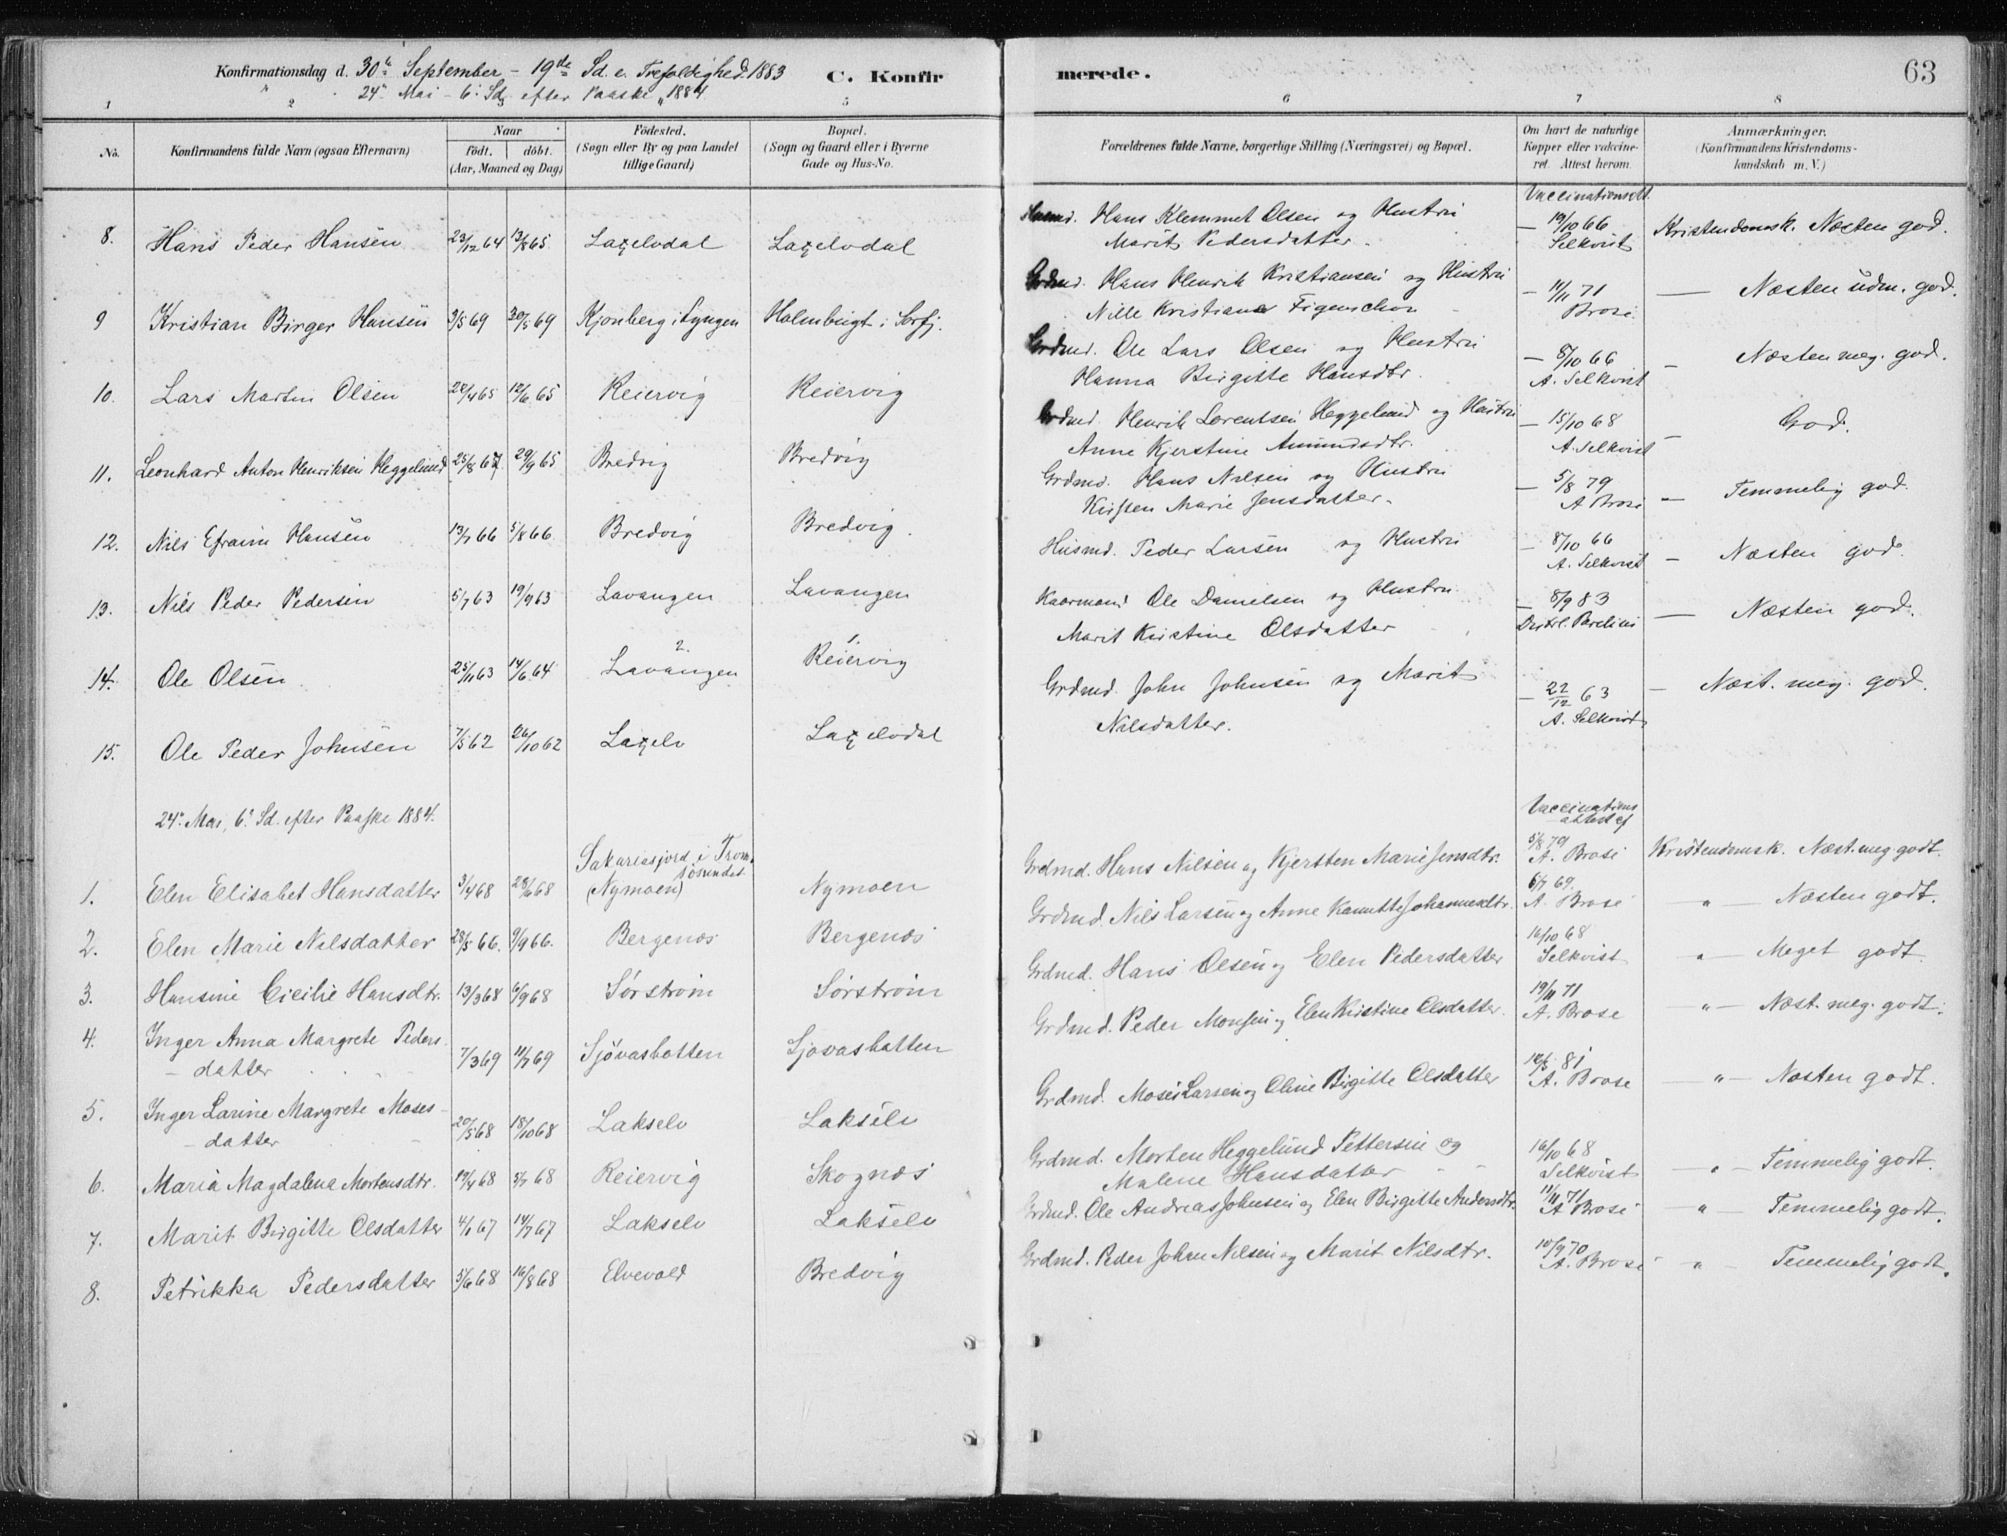 Konfirmationsdag d. 30te September - 19de Sd. e. Trefoldighed 1883 C. Konfirmerede. 63
" 24de Mai - 6te Sd. efter Paaske " 1884
1 2 5 6 7 8
No. Konfirmandens fulde Navn (ogsaa Efternavn) Naar födt. döbt. (Aar, Maaned og Dag) Födested. (Sogn eller By og paa Landet tillige Gaard) Bopæl. (Sogn og Gaard eller i Byerne Gade og Hus-No. Forældrenes fulde Navne, borgerlige Stilling (Næringsvei) og Bopæl. Om havt de naturlige Kopper eller vaccineret. Attest herom. Anmærkninger. (Konfirmandens Kristendomskundskab m. V.)
Vaccinationsatt.
8. Hans Peder Hansen 23/12 64 13/8 65 Laxelvdal Laxelvdal Husmd. Hans Klemmet Olsen og Hustru Marit Pedersdatter. — 19/10 66 Selkvist Kristendomsk. Næsten god.
9 Kristian Birger Hansen 3/5 69 30/5 69 Kjonberg i Lyngen Holmbugt i Sorfj. Grdmd. Hans Henrik Kristiansen og Hustru Nille Kristiane Figenschou — 11/11 71 Brose — Næsten udm. god.
10. Lars Martin Olsen 22/4 65 12/6 65 Reiervig Reiervig Grdmd. Ole Lars Olsen og Hustru Hanna Birgitte Hansdtr. — 8/10 66 A. Selkvist — Næsten meg. god.
11. Leonhard Anton Henriksen Heggelund 25/8 67 29/9 65 Bredvig Bredvig Grdmd. Henrik Lorentsen Heggelund og Hustru Anne Kjerstine Amundsdtr. — 15/10 68 A. Selkvist — God.
12. Nils Efraim Hansen 13/7 66 5/8 66 Bredvig Bredvig. Grdmd. Hans Nilsen og Hustru Kirsten Marie Jensdatter. — 5/8 79 A Brose — Temmelig god.
13. Nils Peder Pedersen 5/7 63 19/9 63 Lavangen Lavangen Husmd. Peder Larsen og Hustru — 8/10 66 A. Selkvist — Næsten god.
14. Ole Olsen 25/11 63 14/6 64 Lavangen 2. Reiervig Kaarmand Ole Danielsen og Hustru Marit Kristine Olsdatter — 8/9 83 — Næsten god.
15. Ole Peder Johnsen 7/5 62 26/10 62 Laxelv Laxelvdal Grdmd. John Johnsen og Marit Nilsdatter. — 22/12 63 A. Selkvist — Næst. meg. god.
24de Mai, 6te Sd. efter Paaske 1884. Vaccinationsattest af
1. Elen Elisabet Hansdatter 3/4 68 28/6 68 Sakariasjord i Tromsösundet (Nymoen) Nymoen Grdmd. Hans Nilsen og Kjersten Marie Jensdtr. 5/8 79 A. Brose Kristendomsk. Næst. meg. godt.
2. Elen Marie Nilsdatter 28/5 66. 9/9 66. Bergenæs Bergenæs Grdmd. Nils Larsen og Anne Kanutte Johannesdtr. 6/7 69. A. Brose " Næsten godt.
3. Hansine Cicilie Hansdtr. 13/3 68 6/9 68 Sørstrøm Sørstrøm Grdmd. Hans Olsen og Elen Pedersdatter 16/10 68 Selkvist " — Meget godt.
4. Inger Anna Margrete Pedersdatter 7/3 69 11/7 69 Sjövasbotten Sjovasbotten Grdmd. Peder Monsen og Elen Kristine Olsdatter. 19/11 71 A. Brose " — Næst. meg. godt.
5. Inger Larine Margrete Mosesdatter 20/5 68 18/10 68 Lakselv Lakselv Grdmd. Moses Larsen og Oline Birgitte Olsdatter 81 A. Brose — " — Næsten godt.
6. Maria Magdalena Mortensdtr. 19/4 68 5/7 68 Reiervig Skognæs Grdmd. Morten Heggelund Pettersen og Malene Hansdatter 16/10 68 Selkvist " — Temmelig godt.
7. Marit Birgitte Olsdatter 4/6 67 14/7 67 Lakselv Lakselv Grdmd. Ole Andreas Johnsen og Elen Birgitte Andersdtr. 11/11 71 A Brose " — Temmelig godt.
8. Petrikka Pedersdatter 5/6 68 16/8 68 Elvevold Bredvig Grdmd. Peder Johan Nilsen og Marit Nilsdtr. 10/9 70 A. Brose " — Temmelig godt.